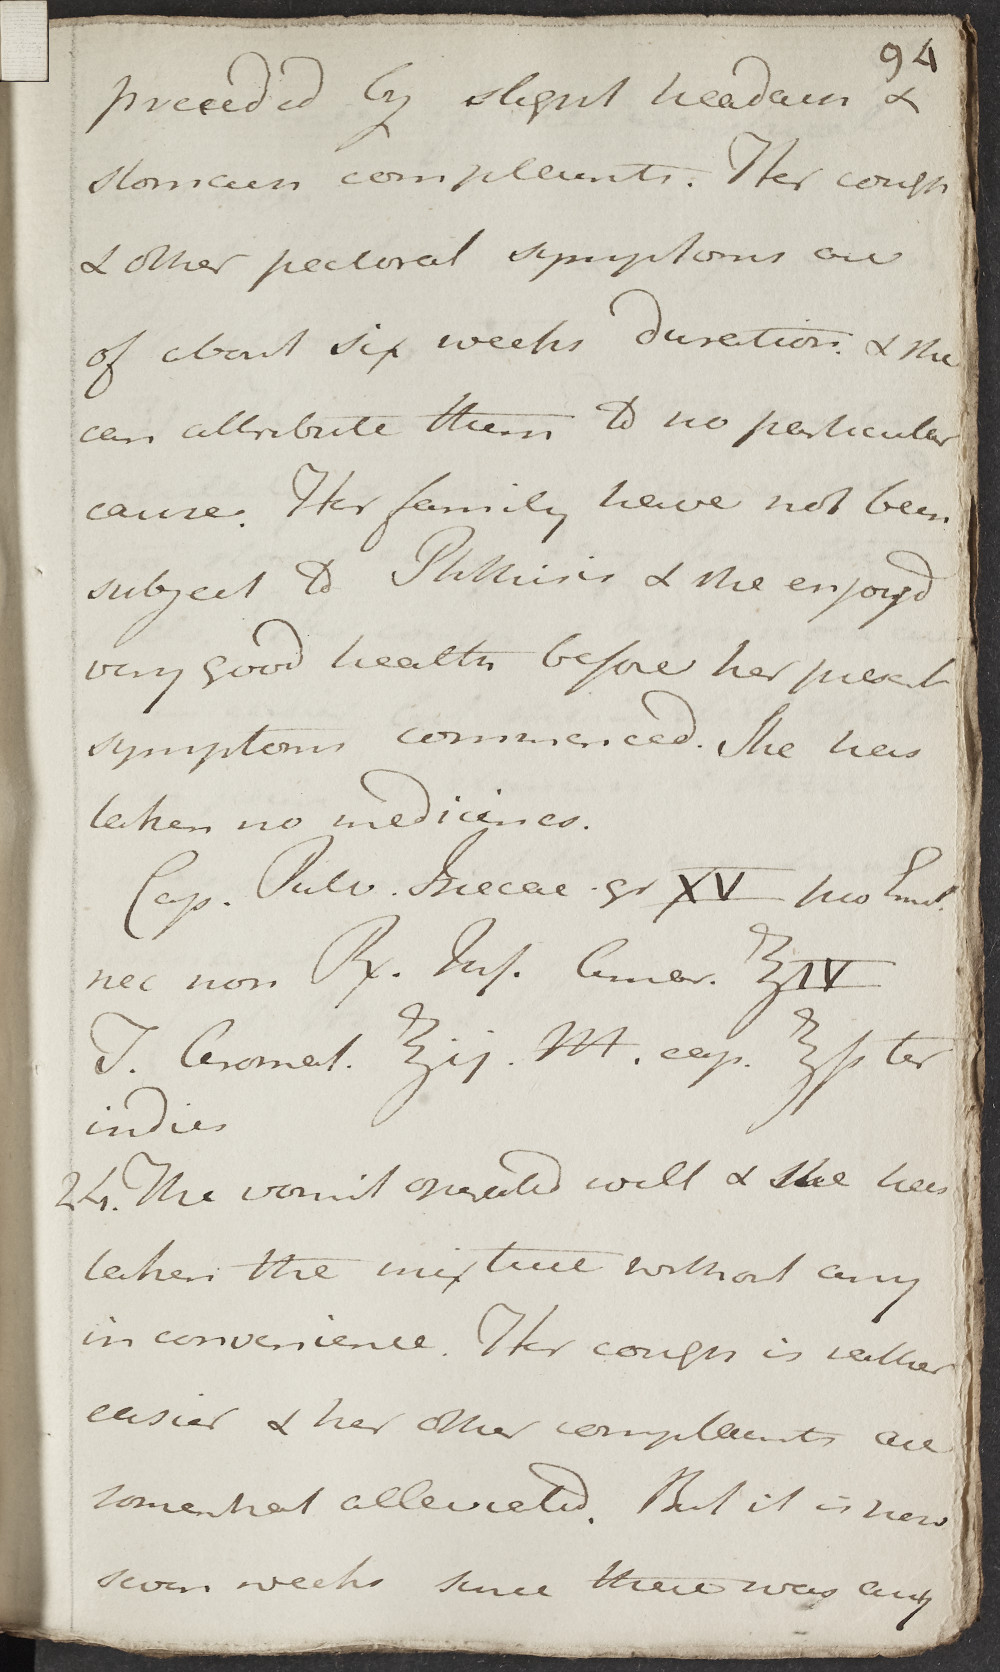 94
preceded by slight headach &
stomach complaints. Her cough
& other pectoral symptoms are
of about six weeks duration. & she
can attribute them to no particular
cause. Her family have not been
subject to Phthisis & she enjoyd
very good health before her present
symptoms commenced. She has
taken no medicines.
Cap. Pulv. Ipecac. gr XV pro Emet.
nec non Rx. Inf. Amar. ℥IV
T. Aromat. ℥ij. M. cap. ℥ß ter
indies
24. The vomit operated well & she has
taken the mixture without any
inconvenience. Her cough is rather
easier & her other complaints are
somewhat alleviated. But it is now
seven weeks since there was any